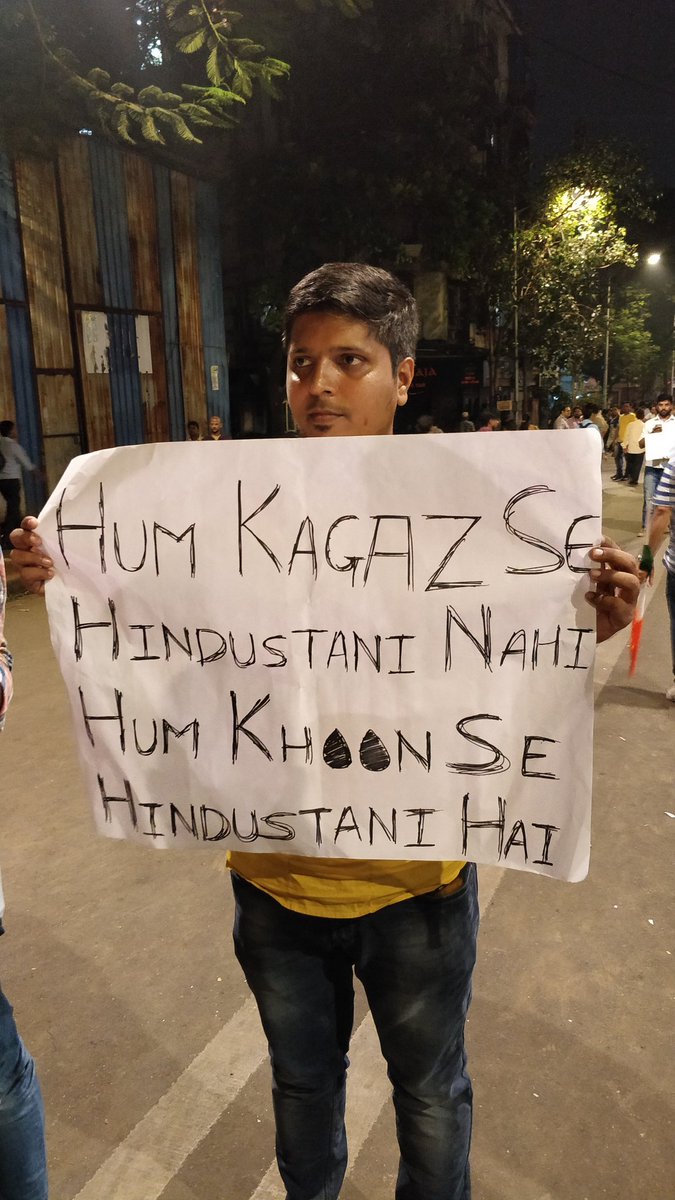 HUM KAGAZ SE
HINDUSTANI NAHI
HUM KHOON SE
HINDUSTANI HAI